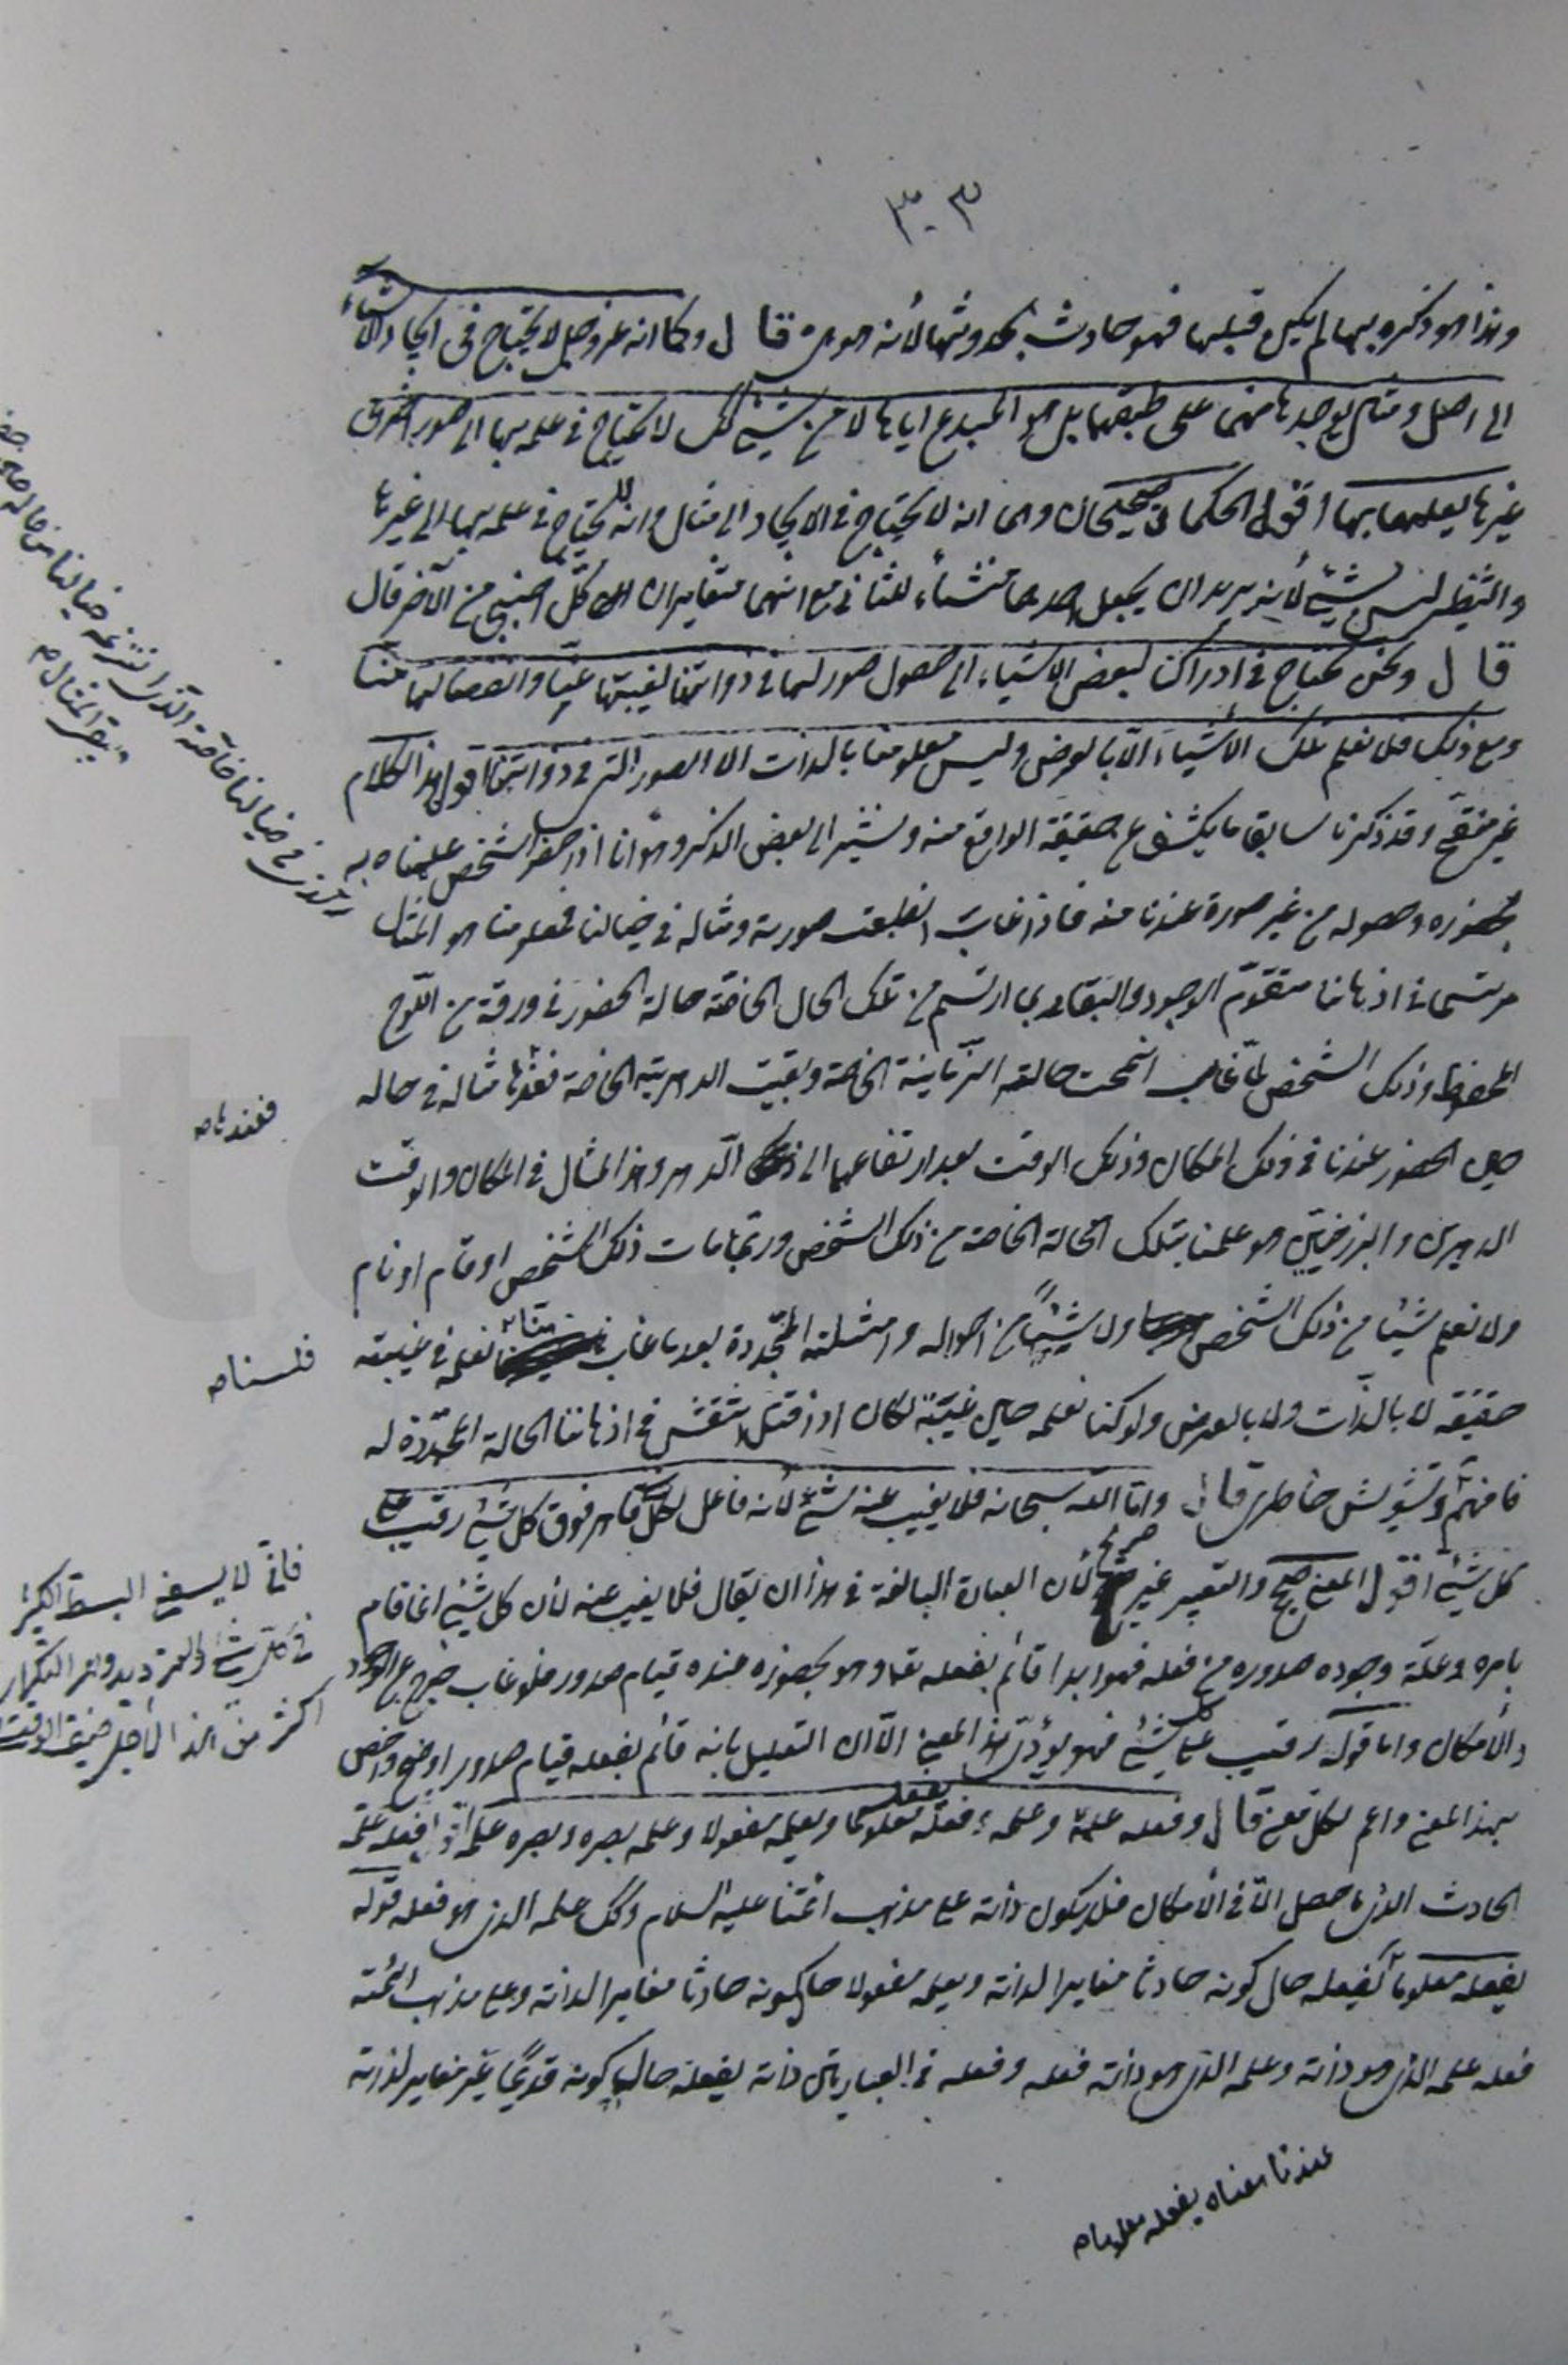 ٣٠٣
وهذا هو ذكره بها لم يكن قبلها فهو حادث بحدوثها لأنه هو هي قال وكما انه عز وجل لا يحتاج في ايجاد الاشياء
الى اصل ومثال يوجدها منهما على طبقهما بل هو المبدع اياها لا من شيئ كك لا يحتاج في علمه بها الى صور اخرى
غيرها يعلمها بها اقول الحكمان صحيحان وهما انه لا يحتاج في الايجاد الى مثال وانه لا يحتاج في علمه بها الى غيرها
والتنظير ليس بشيئ لأنه يريد ان يجعل احدهما منشأ للثاني مع انهما متغايران كل اجنبي من الآخر قال
قال ونحن نحتاج في ادراكنا لبعض الاشياء الى حصول صور لها في ذواتنا لغيبتها عنّا وانفصالها منّا
ومع ذلك فلا نعلم تلك الأشياء الّا بالعرض وليس معلومنا بالذات الا الصور التي في ذواتنا اقول هذا الكلام
غير منقح وقد ذكرنا سابقا ما يكشف عن حقيقة الواقع منه ونشير الى بعض الذكر وهو انا اذا حضر الشخص علمناه به
بحضوره وحصوله من غير صورة عندنا منه فاذا غاب انطبعت صورته ومثاله في خيالنا فمعلومنا هو المثال
مرتسما في اذهاننا متقوّم الوجود والبقاء بما ارتسم من تلك الحال الخاصّة حالة الحضور في ورقة من اللّوح
المحفوظ وذلك الشخص لمّا غاب انمحت حالته الزّمانية الخاصة وبقيت الدهريّة الخاصة فعندها مثاله في حاله
حين الحضور عندنا في ذلك المكان وذلك الوقت بعد ارتفاعهما الى الدّهر وهذا المثال في المكان والوقت
الدهريين والبرزخيين هو علمنا بتلك الحالة الخاصة من ذلك الشخص وربما مات ذلك الشخص او قام او نام
ولا نعلم شيئا من ذلك الشخص ولا شيئاً من احواله وامثلته المتجدّدة بعد ما غاب عنّا نعلمه في غيبته
حقيقة لا بالذّات ولا بالعرض ولو كنا نعلمه حين غيبته لكان اذا قتل انتقش في اذهاننا الحالة المتجدّدة له
فافهم قال وامّا الله سبحانه فلا يغيب عنه شيئ لأنه فاعل لكل شيئ قاهر فوق كل شيئ رقيب على
كل شيئ اقول المعنى صحيح والتعبير غير صريح لأن العبارة البالغة في هذا ان يقال فلا يغيب عنه لأن كل شيئ انما قام
بامره وعلّة وجوده صدوره من فعله فهو ابدا قائم بفعله وهو بحضوره عنده قيام صدور فلو غاب خرج عن الوجود
والأمكان واما قوله رقيب على كل شيئ فهو يؤدّي هذا المعنى الّا ان التعليل بانه قائم بفعله قيام صدور اوضح واخص
بهذا المعنى واعم لكل معنى قال وفعله علمه وعلمه فعله بفعله معلوما وبعلمه مفعولا وعلمه بصره وبصره علمه اقول فعله علمه
الحادث الذي ما حصل الّا في الأمكان فلا يكون ذاته على مذهب ائمّتنا عليهم السلام وكك علمه الذي هو فعله قوله
بفعله معلوماً بفعله حال كونه حادثا مغايرا لذاته وبعلمه مفعولا حال كونه حادثا مغايرا لذاته وعلى مذهب ائمته
فعله علمه الذي هو ذاته وعلمه الذي هو ذاته فعله وفعله في العبارتين ذاته بفعله حال كونه قديماً غير مغاير لذاته
عندنا معناه بفعله معلوما ه
فعندنا ه
فلسنا ه
فانّي لا يسعني البسط الكثير
في كلّ شيئ والترديد وهذا التكرار
اكثر من هذا لاجل ضيق الوقت